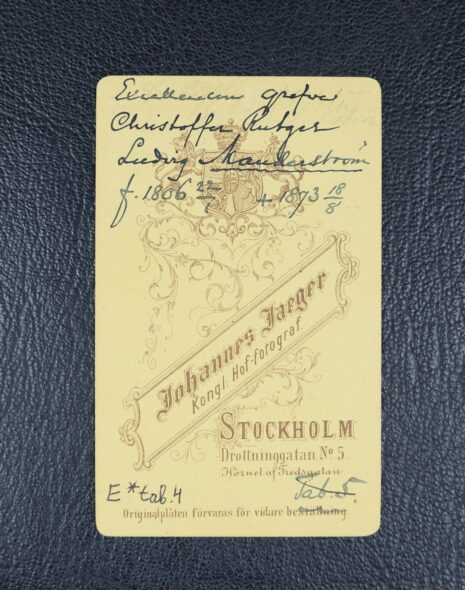 Excellensen grefve
Christoffer Rutger
Ludvig Manderström
f. 1806 22/1 + 1873 18/8
Johannes Jaeger
Kongl. Hof-fotograf.
STOCKHOLM
Drottninggatan No 5.
Hörnet af Fredsgatan
E*tab.4
Tab. 5.
Originalplåten förvaras för vidare beställning.